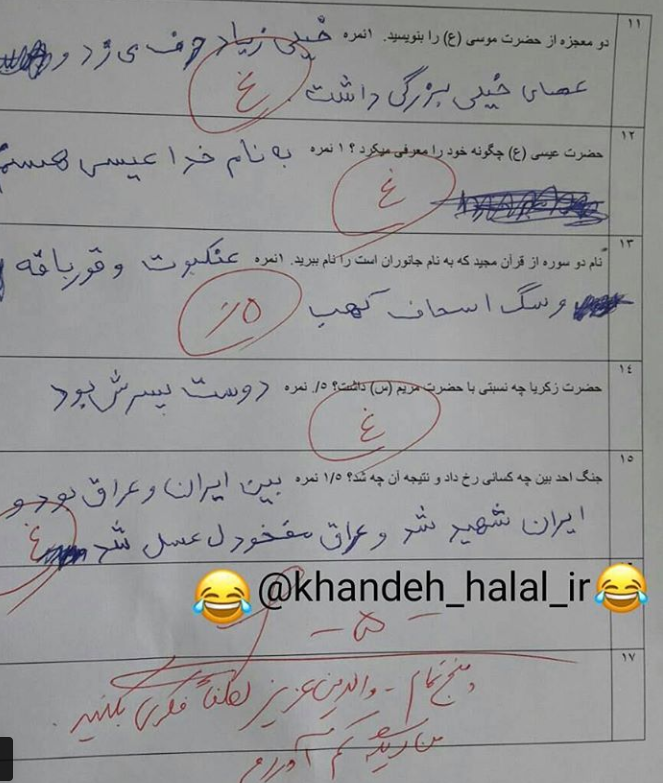 ۱۱
دو معجزه از حضرت موسی (ع) را بنویسید. ۱نمره خیلی زیاد حرف می زد و
عصای خیلی بزرگی داشت.
غ
۱۲
حضرت عیسی (ع) چگونه خود را معرفی میکرد ؟ ۱ نمره به نام خدا عیسی هستم
غ
۱۳
نام دو سوره از قرآن مجید که به نام جانوران است را نام ببرید. ۱نمره عنکبوت و قورباقه
و سگ اسحاف کهب
۰/۵
۱۴
حضرت زکریا چه نسبتی با حضرت مریم (س) داشت؟ ۰/۵ نمره دوست پسرش بود
غ
۱۵
جنگ احد بین چه کسانی رخ داد و نتیجه آن چه شد؟ ۱/۵ نمره بین ایران و عراق بود و
ایران شهید شد و عراق مفخودل عسل شد
غ
@khandeh_halal_ir
- ۵ -
۱۷
پنج تمام - والدین عزیز لطفاً فکری بکنید.
من دیگه کم آوردم